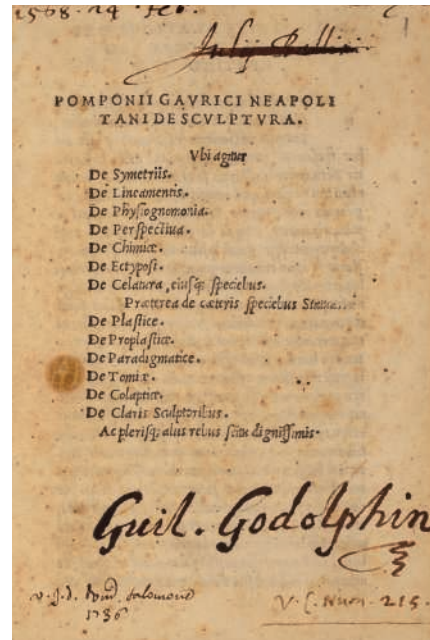 1568. 24 Feb.
1
Julij
POMPONII GAVRICI NEAPOLI
TANI DE SCVLPTVRA.
Vbi agitur
De Symetriis.
De Lineamentis.
De Physiognomonia.
De Perspectiua.
De Chimice.
De Ectyposi.
De Celatura, eiusq; speciebus.
Præterea de cæteris speciebus Statuariæ
De Plastice.
De Proplastice.
De Paradigmatice.
De Tomice.
De Colaptice.
De Claris Sculptoribus.
Ac plerisq; aliis rebus scitu dignissimis.
Guil. Godolphin
1736
V. C. Num. 215.